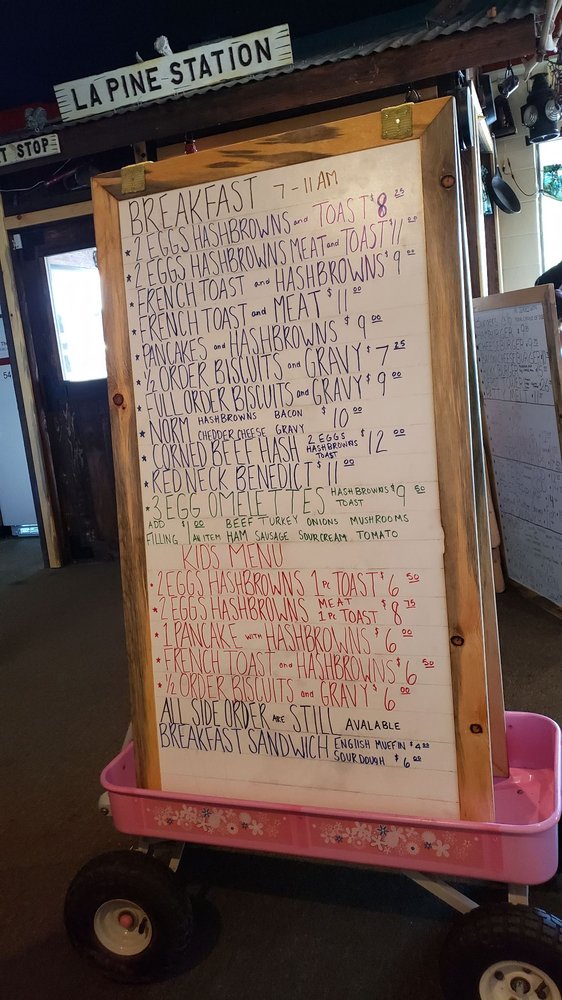 LA PINE STATION
T STOP
BREAKFAST 7-11 AM
* 2 EGGS HASHBROWNS and TOAST $8 25
* 2 EGGS HASHBROWNS MEAT and TOAST $11 00
* FRENCH TOAST and HASHBROWNS $9 00
* FRENCH TOAST and MEAT $11 00
* PANCAKES and HASHBROWNS $9 00
* 1/2 ORDER BISCUITS and GRAVY $7 25
* FULL ORDER BISCUITS and GRAVY $9 00
* NORM HASHBROWNS BACON $10 00
CHEDDER CHEESE GRAVY
* CORNED BEEF HASH 2 EGGS HASHBROWNS TOAST $12 00
* RED NECK BENEDICT $11 00
* 3 EGG OMELETTES HASHBROWNS TOAST $9 50
ADD $1 00 BEEF TURKEY ONIONS MUSHROOMS
FILLING AN ITEM HAM SAUSAGE SOUR CREAM TOMATO
KIDS MENU
* 2 EGGS HASHBROWNS 1 Pc TOAST $6 50
* 2 EGGS HASHBROWNS MEAT 1 Pc TOAST $8 75
* 1 PANCAKE WITH HASHBROWNS $6 00
* FRENCH TOAST and HASHBROWNS $6 50
* 1/2 ORDER BISCUITS and GRAVY $6 00
ALL SIDE ORDER ARE STILL AVALABLE
BREAKFAST SANDWICH ENGLISH MUEFIN $4 00
SOURDOUGH $6 00
54